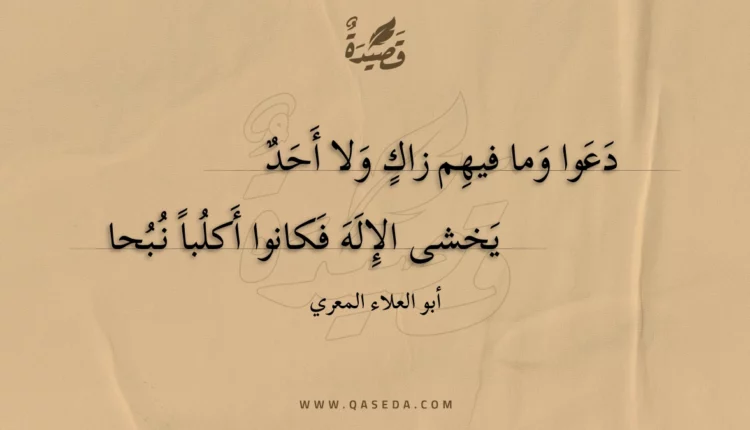 قَصِيدَةٌ
دَعَوا وَما فيهِم زاكٍ وَلا أَحَدٌ
يَخشى الإِلَهَ فَكانوا أَكلُباً نُبُحا
أبو العلاء المعري
WWW.QASEDA.COM